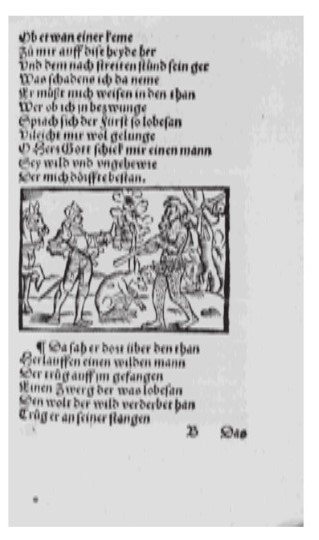 Ob etwan einer keme
Zů mir auff dise heyde her
Vnd dem nach streiten stünd sein ger
Was schadens ich da neme
Er můßt mich weisen in den than
Wer ob ich in bezwunge
Sprach sich der Fürst so lobesan
Vileicht mir wol gelunge
O Herr Gott schick mir einen mann
Sey wild vnd vngehewre
Der mich dörffte bestan.
¶ Da sah er dort über den than
Herlauffen einen wilden mann
Der trůg auff jm gefangen
Einen Zwerg der was lobesan
Den wolt der wild verderbet han
Trůg er an seiner stangen
B Das